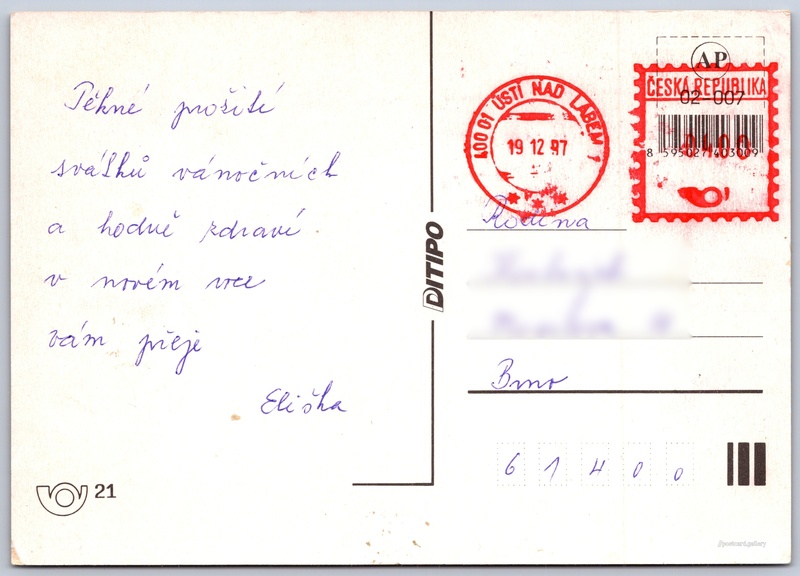 Pěkné prožití
svátků vánočních
a hodně zdraví
v novém roce
vám přeje
Eliška
21
DITIPO
400 01 ÚSTÍ NAD LABEM 1
19 12 97
AP
ČESKÁ REPUBLIKA
02-007
0400
8 595027 403009
Rodina
Brno
61400